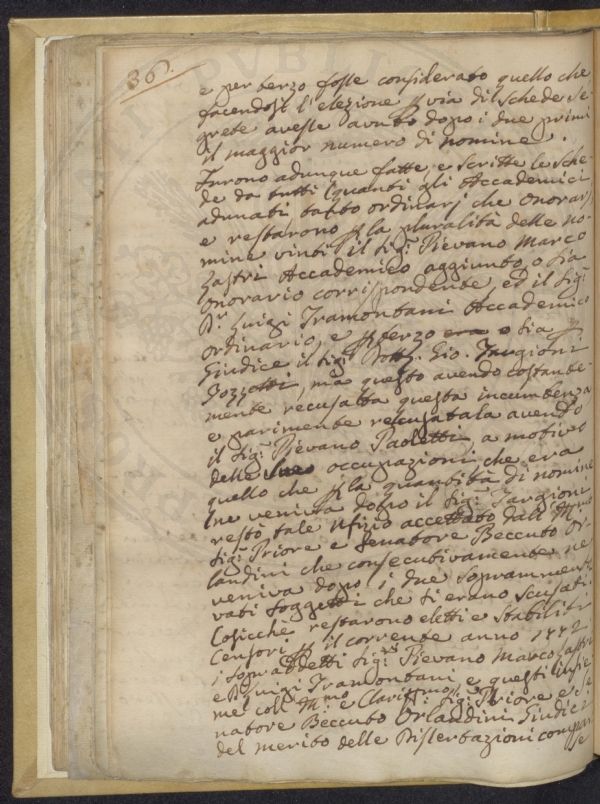 36.
e per terzo fosse considerato quello che
facendosi l'elezione p via di Schede Se-
grete avesse avuto dopo i due primi
il maggior numero di nomine.
Furono adunque fatte, e scritte le Sche-
de da tutti quanti gli Accademici
adunati tatto ordinarj che Onorarj,
e restarono p la pluralità delle no-
mine vinti il Sig.r Pievano Marco
Lastri Accademico aggiunto, o sia
Onorario corrispondente, ed il Sig.r
D.r Luigi Tramontani Accademico
ordinario, e p terzo o sia
Giudice il Sig.r Dott. Gio. Targioni
Tozzetti, ma questo avendo costante-
mente recusatta questa incumbenza
e parimente recusatala avendo
il Sig.r Pievano Paoletti, a motivo
delle Sue occupazioni che era
quello che p la quantità di nomine
ne veniva dopo il Sig.r Targioni
restò tale Ufizio accettato dall' Ill.mo
Sig.r Priore e Senatore Beccuto Or-
landini che consecutivamente ne
veniva dopo i due soprammento-
vati Soggetti che si erano scusati.
Cosicchè restarono eletti e stabiliti
Censori p il corrente anno 1772
i sopraddetti Sig.ri Pievano Marco Lastri
e D. Luigi Tramontani e questi insie-
me coll' Ill.mo e Clarissmo Sig.r Priore e Se-
natore Beccuto Orlandini Giudici
del merito delle Dissertazioni